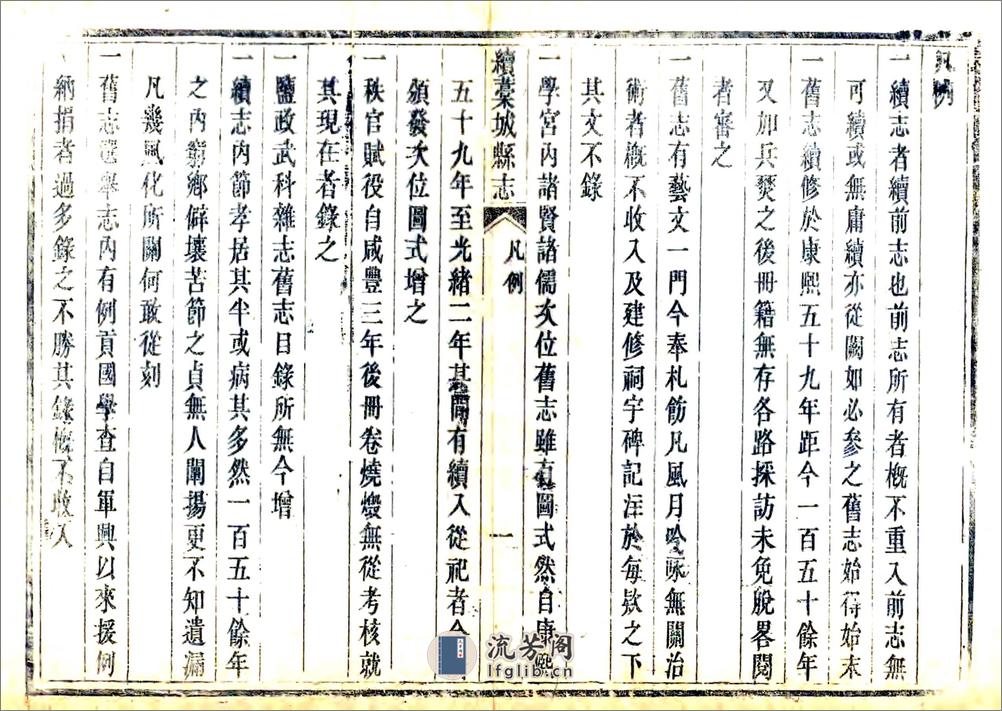 凡例
一續志者續前志也前志所有者概不重入前志無
可續或無庸續亦從闕如必參之舊志始得始末
一舊志續修於康熙五十九年距今一百五十餘年
又如兵燹之後冊籍無存各路採訪未免脫畧閱
者審之
一舊志有藝文一門今奉札飭凡風月吟咏無關治
術者概不收入及建修祠宇碑記注於每欵之下
其文不錄
一學宮內諸賢諸儒次位舊志雖有圖式然自康熙
續藁城縣志
凡例
一
五十九年至光緒二年其間有續入從祀者今
頒發次位圖式增之
一秩官賦役自咸豐三年後冊卷燒燬無從考核就
其現在者錄之
一鹽政武科雜志舊志目錄所無今增
一續志內節孝居其半或病其多然一百五十餘年
之內窮鄉僻壤苦節之貞無人闡揚更不知遺漏
凡幾風化所關何敢從刻
一舊志選舉志內有例貢國學查自軍興以來援例
納捐者過多錄之不勝其錄概不收入
流芳阁
lfglib.cn